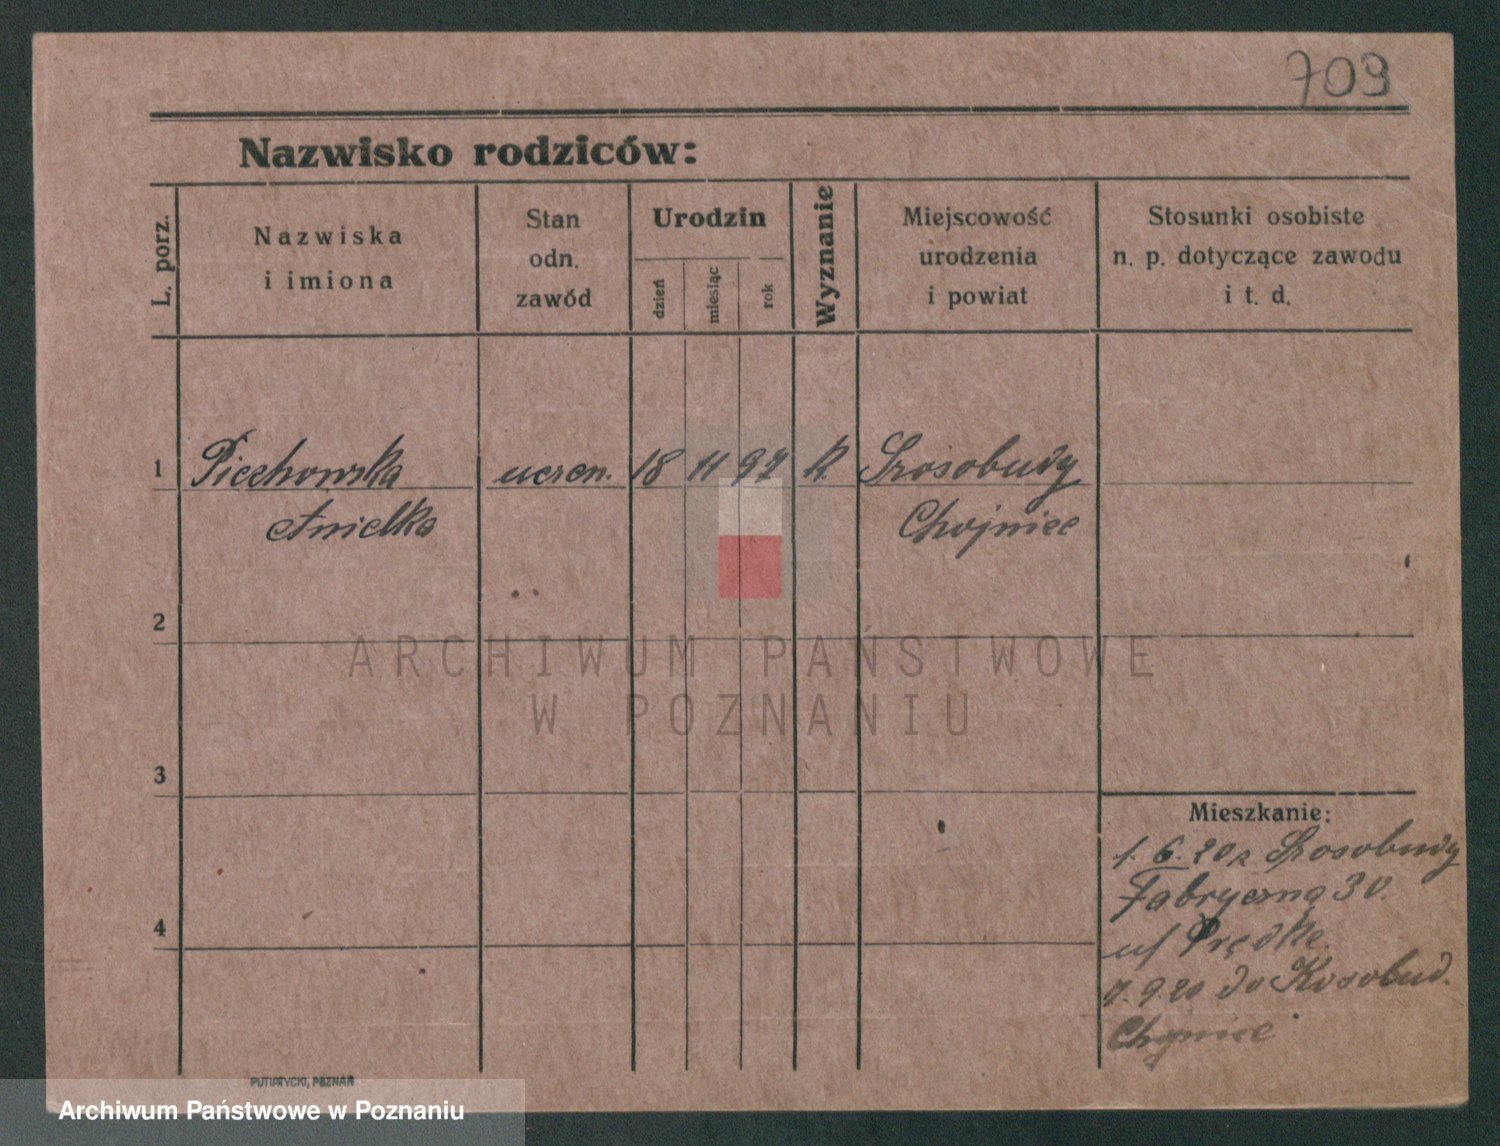 709
Nazwisko rodziców:
L. porz.
Nazwiska
i imiona
Stan
odn.
zawód
Urodzin
dzień
miesiąc
rok
Wyznanie
Miejscowość
urodzenia
i powiat
Stosunki osobiste
n. p. dotyczące zawodu
i t. d.
1 Piechowska uczen. 18 11 97 k.
Anielka Chojnice
2
ARCHIWUM PAŃSTWOWE
W POZNANIU
3
Mieszkanie:
1. 6. 20
Fabryczna 30.
4
7. 9. 20 do Kosobud.
Chojnice
PUTIATYCKI, POZNAŃ
Archiwum Państwowe w Poznaniu